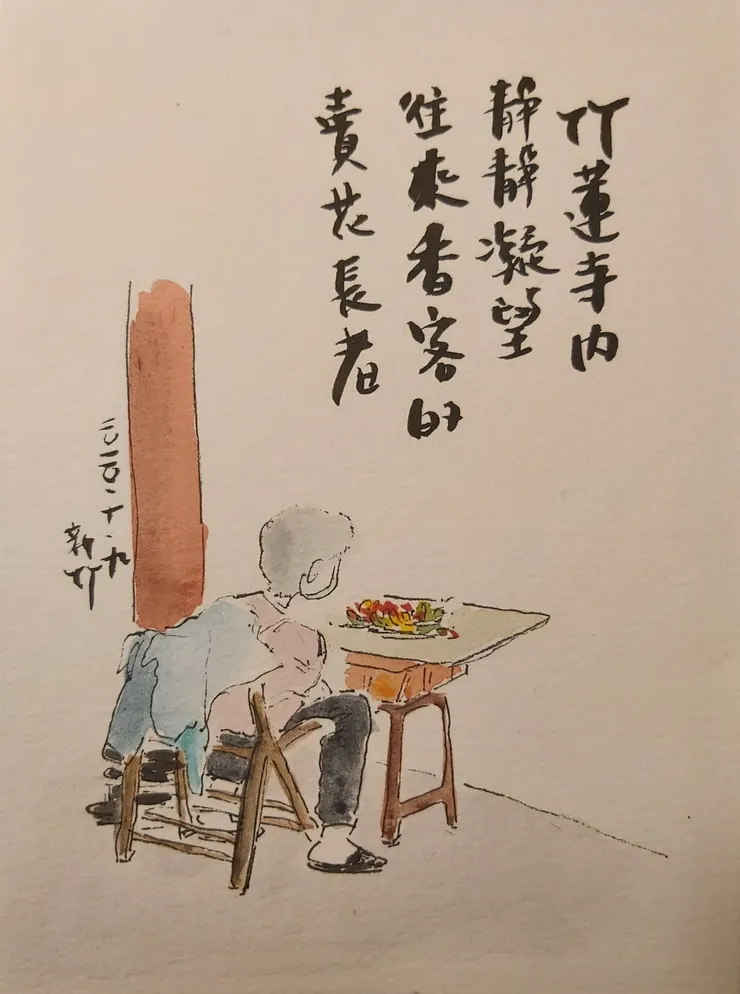 竹蓮寺內
靜靜凝望
往來香客的
賣花長者
二〇二〇・十・九
新竹